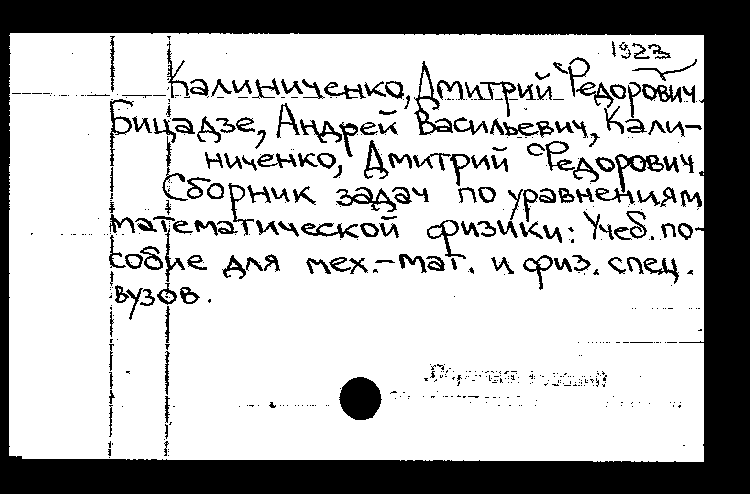 1923
Калиниченко, Дмитрий Федорович.
Бицадзе, Андрей Васильевич, Кали-
ниченко, Дмитрий Федорович.
Сборник задач по уравнениям
математической физики: Учеб. по-
собие для мех.-мат. и физ. спец.
вузов.